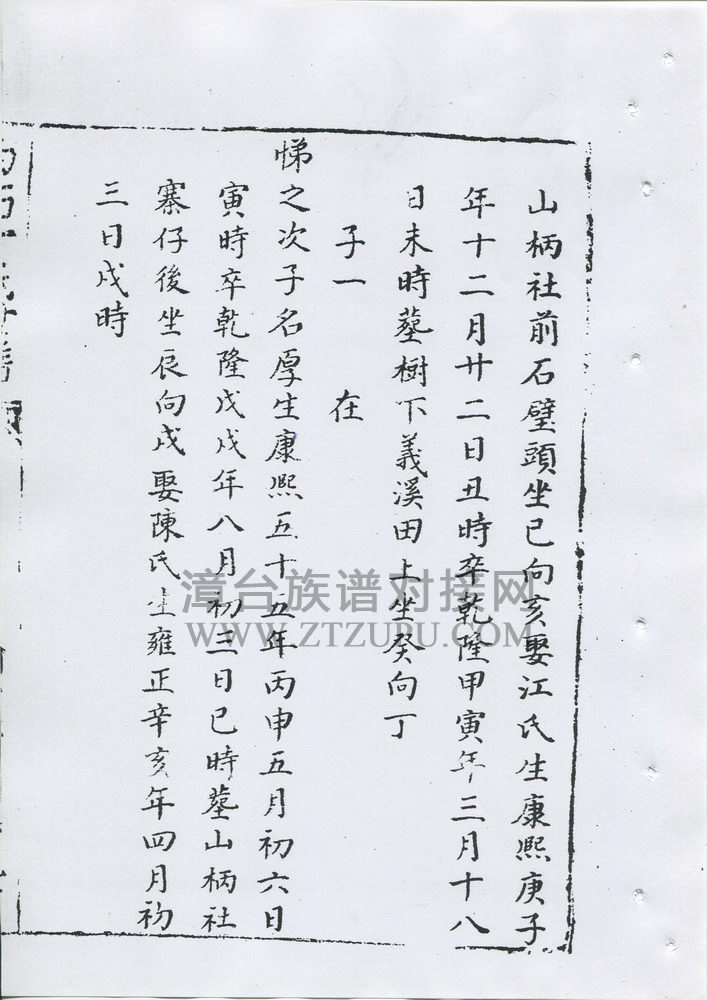 山柄社前石壁頭坐巳向亥娶江氏生康熙庚子
年十二月廿二日丑時卒乾隆甲寅年三月十八
日未時墓樹下義溪田上坐癸向丁
子一 在
悌之次子名厚生康熙五十五年丙申五月初六日
寅時卒乾隆戊戌年八月初三日巳時墓山柄社
寨仔後坐辰向戌娶陳氏生雍正辛亥年四月初
三日戌時
漳台族谱对接网
WWW.ZTZUPU.COM